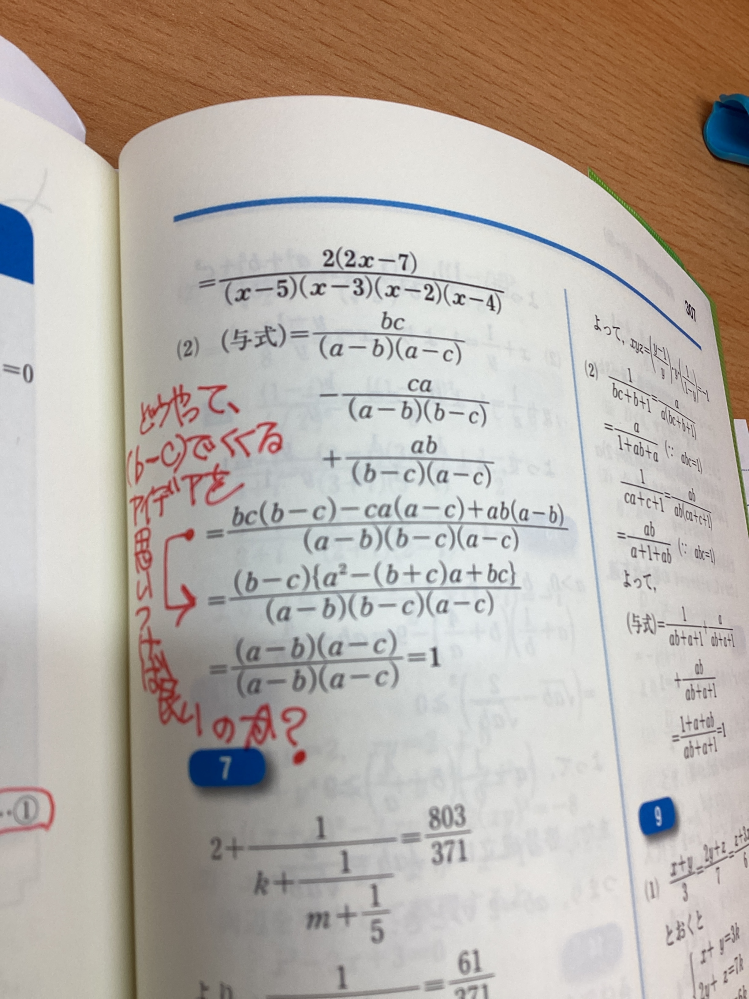 =0
‥①
= 2(2x-7) / (x-5)(x-3)(x-2)(x-4)
(2) (与式)= bc / (a-b)(a-c)
- ca / (a-b)(b-c)
+ ab / (b-c)(a-c)
= bc(b-c)-ca(a-c)+ab(a-b) / (a-b)(b-c)(a-c)
= (b-c){a²-(b+c)a+bc} / (a-b)(b-c)(a-c)
= (a-b)(a-c) / (a-b)(a-c) =1
どうやって、
(b-c)でくくる
アイデアを
思いつけば
良いのか?
7
2+ 1 / k+ 1 / m+ 1/5 = 803/371
より 1 = 61/371
307
よって, xyz=
(2) 1 / bc+b+1 = a / a(bc+b+1)
= a / 1+ab+a (∵ abc=1)
1 / ca+c+1 = ab / ab(ca+c+1)
= ab / a+1+ab (∵ abc=1)
よって,
(与式)= 1 / ab+a+1 + a / ab+a+1
+ ab / ab+a+1
= 1+a+ab / ab+a+1 =1
9
(1) x+y / 3 = 2y+z / 7 =
とおくと
x+ y=3k
2y+ z=7k